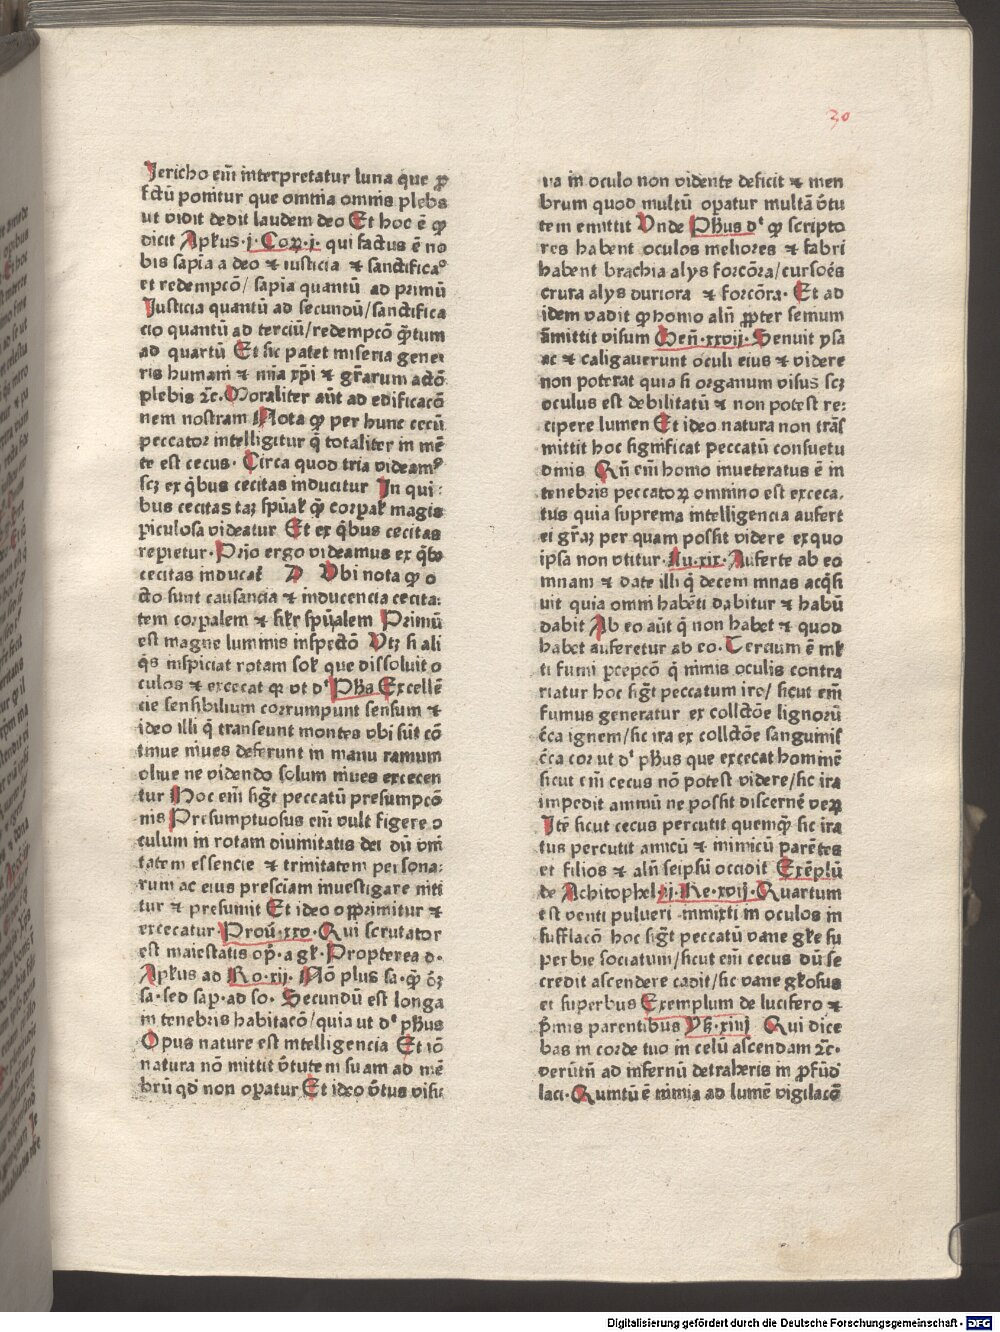 30
Jericho em̄ interpretatur luna que ꝓ
fctū ponitur que omnia omnis plebs
ut vidit dedit laudem deo Et hoc ē ꝙ
dicit Apl'us ·j· Coꝝ·j· qui factus ē no
bis sapīa a deo ⁊ iusticia ⁊ sanctifica⁰
et redempcō/ sapīa quantū ad primū
Justicia quantū ad secundū/sanctifica
cio quantū ad terciū/redempcō ꝙ̄tum
ad quartū Et sic patet miseria gene-
ris humani ⁊ mīa xp̄i ⁊ gr̄arum actō
plebis ⁊c. Moraliter aūt ad edificacō
nem nostram Nota ꝙ per hunc cecū
peccator intelligitur q̄ totaliter in mē
te est cecus. Circa quod tria videam⁹
scꝫ ex q̄bus cecitas inducitur In qui-
bus cecitas taꝫ sp̄ual' ꝙ̄ corꝑal' magis
ꝑiculosa videatur Et ex q̄bus cecitas
reꝑietur. Prīo ergo videamus ex q̄b⁹
cecitas inducat᷑ Vbi nota ꝙ o
cto sunt causancia ⁊ inducencia cecita-
tem corꝑalem ⁊ sil'r sp̄ualem Primū
est magne luminis inspectō Vtꝫ si ali
q̄s inspiciat rotam sol' que dissoluit o
culos ⁊ excecat ꝙ vt d᷑ Ph'us Excellē
cie sensibilium corrumpunt sensum ⁊
ideo illi q̄ transeunt montes vbi sūt cō
tinue niues deferunt in manu ramum
oliue ne videndo solum niues excecen
tur Hoc em̄ sig̅t peccatū presumpcō
nis Presumptuosus em̄ vult figere o
culum in rotam diuinitatis dei dū vni
tatem essencie ⁊ trinitatem persona-
rum ac eius presciam inuestigare niti
tur ⁊ presumit Et ideo opprimitur ⁊
excecatur Prou̅·xxv· Qui scrutator
est maiestatis op̄·a gl'· Propterea d·
Apl'us ad Ro·xij· Nō plus sa·ꝙ̄ o̅ꝫ
sa·sed sap·ad so· Secundū est longa
in tenebris habitacō/quia ut d᷑ ph'us
Opus nature est intelligencia Et iō
natura nō mittit v̄tutem suam ad mē
brū qd̄ non oꝑatur Et ideo v̄tus visi
ua in oculo non vidente deficit ⁊ mem
brum quod multū oꝑatur multā v̄tu
tem emittit Vnde Ph'us d᷑ ꝙ scripto
res habent oculos meliores ⁊ fabri
habent brachia alys forcōra/cursoēs
crura alys duriora ⁊ forcōra. Et ad
idem vadit ꝙ homo aln̄ ꝓpter senium
āmittit visum Gen̄·xxvij· Senuit ysa
ac ⁊ caligauerunt oculi eius ⁊ videre
non poterat quia si organum visus scꝫ
oculus est debilitatū ⁊ non potest re-
cipere lumen Et ideo natura non trās
mittit hoc significat peccatū consuetu
dinis Qn̄ em̄ homo inueteratus ē in
tenebris peccatoꝝ omnino est exceca-
tus quia suprema intelligencia aufert
ei gr̄aꝫ per quam possit videre ex quo
ipsa non vtitur. Lu·xix· Auferte ab eo
mnam ⁊ date illi q̄ decem mnas acq̄si
uit quia omni habēti dabitur ⁊ habū
dabit Ab eo aūt q̄ non habet ⁊ quod
habet auferetur ab eo. Tercium ē ml'
ti fumi ꝑcepcō q̄ nimis oculis contra
riatur hoc sig̅t peccatum ire/ sicut em̄
fumus generatur ex collctōe lignorū
c̄ca ignem/sic ira ex collctōe sanguinis
c̄ca cor ut d᷑ ph'us que excecat hominē
sicut em̄ cecus nō potest videre/sic ira
impedit animū ne possit discernē veꝝ
Itē sicut cecus percutit quemꝙ̄ sic ira
tus percutit amicū ⁊ inimicū parētes
et filios ⁊ aln̄ seipsū occidit Exēplū
de Achitophel·ij·Re·xvij· Quartum
est venti pulueri inmixti in oculos in
sufflacō hoc sig̅t peccatū vane gl'e su
perbie sociatum/sicut em̄ cecus dū se
credit ascendere cadit/sic vane gl'osus
et superbus Exemplum de lucifero ⁊
p̄mis parentibus Ys·xiiij Qui dice
bas in corde tuo in celū ascendam ⁊c·
verūtn̄ ad infernū detraheris in ꝓfūd'
laci· Quintū ē nimia ad lumē vigilacō
Digitalisierung gefördert durch die Deutsche Forschungsgemeinschaft - DFG